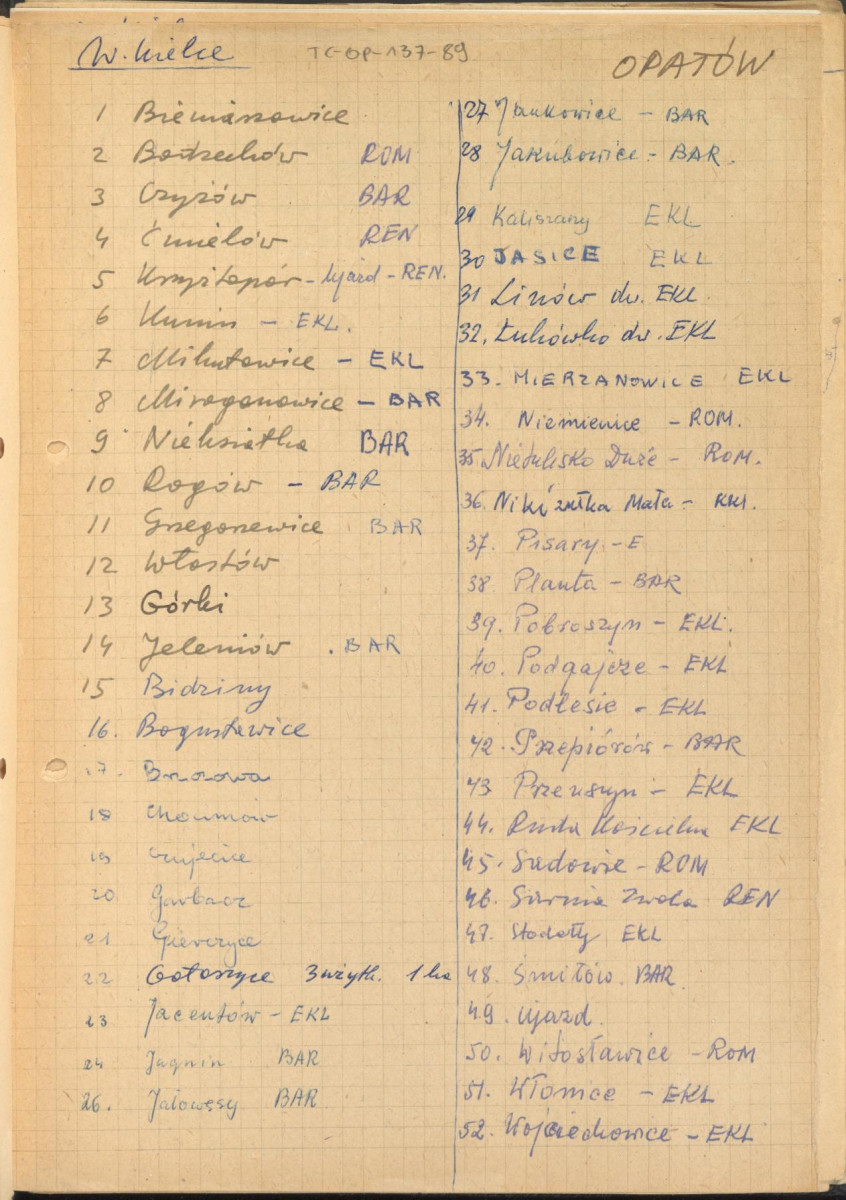 W. Kielce TG-OP-137-89 OPATÓW
1 Bieniaszowice
2 Bodzechów ROM
3 Czyżów BAR
4 Ćmielów REN
5 Krzyżtopór - Ujazd - REN.
6 Kunin - EKL.
7 Mikułowice - EKL
8 Mirogonowice - BAR
9 Niekisiałka BAR
10 Rogów - BAR
11 Grzegorzewice BAR
12 Włostów
13 Górki
14 Jeleniów . BAR
15 Bidziny
16. Bogusławice
17. Brzozowa
18 Chocimów
19
20 Garbacz
21 Gierczyce
22 Gołoszyce 3 użytk. 1 ha
23 Jacentów - EKL
24 Jagnin BAR
26. Jałowęsy BAR
27 Jankowice - BAR
28 Jakubowice - BAR.
29 Kaliszany EKL
30 JASICE EKL
31 Linów dw. EKL.
32. Łukówko dw. EKL
33. MIERZANOWICE EKL
34. Niemienice - ROM.
35. Nietulisko Duże - ROM.
36. Nikisiałka Mała - EKL.
37. Pisary - E
38. Planta - BAR
39. Pobroszyn - EKL.
40. Podgajcze - EKL
41. Podlesie - EKL
42. Przepiórów - BAR
43 Przeuszyn - EKL
44. Ruda Kościelna EKL
45. Sadowie - ROM
46. Sarnia Zwola REN
47. Stodoły EKL
48. Śmiłów. BAR
49. Ujazd.
50. Witosławice - ROM
51. Włonice - EKL
52. Wojciechowice - EKL